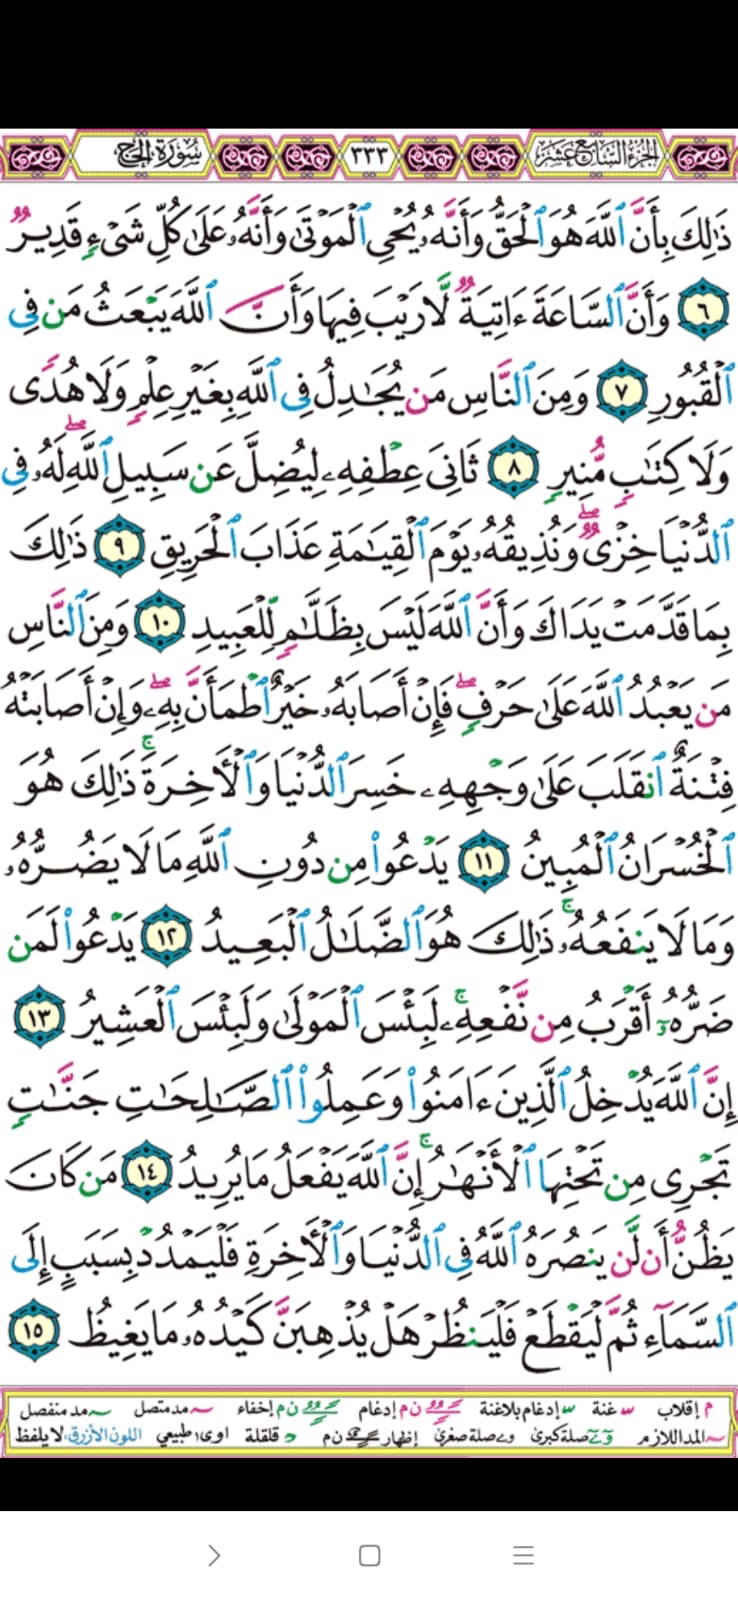 الجزء السابع عشر ٣٣٣ سورة الحج
ذَٰلِكَ بِأَنَّ ٱللَّهَ هُوَ ٱلْحَقُّ وَأَنَّهُۥ يُحْىِ ٱلْمَوْتَىٰ وَأَنَّهُۥ عَلَىٰ كُلِّ شَىْءٍ قَدِيرٌ
٦ وَأَنَّ ٱلسَّاعَةَ ءَاتِيَةٌ لَّا رَيْبَ فِيهَا وَأَنَّ ٱللَّهَ يَبْعَثُ مَن فِى
ٱلْقُبُورِ ٧ وَمِنَ ٱلنَّاسِ مَن يُجَٰدِلُ فِى ٱللَّهِ بِغَيْرِ عِلْمٍ وَلَا هُدًى
وَلَا كِتَٰبٍ مُّنِيرٍ ٨ ثَانِىَ عِطْفِهِۦ لِيُضِلَّ عَن سَبِيلِ ٱللَّهِ ۖ لَهُۥ فِى
ٱلدُّنْيَا خِزْىٌ ۖ وَنُذِيقُهُۥ يَوْمَ ٱلْقِيَٰمَةِ عَذَابَ ٱلْحَرِيقِ ٩ ذَٰلِكَ
بِمَا قَدَّمَتْ يَدَاكَ وَأَنَّ ٱللَّهَ لَيْسَ بِظَلَّٰمٍ لِّلْعَبِيدِ ١٠ وَمِنَ ٱلنَّاسِ
مَن يَعْبُدُ ٱللَّهَ عَلَىٰ حَرْفٍ ۖ فَإِنْ أَصَابَهُۥ خَيْرٌ ٱطْمَأَنَّ بِهِۦ ۖ وَإِنْ أَصَابَتْهُ
فِتْنَةٌ ٱنقَلَبَ عَلَىٰ وَجْهِهِۦ خَسِرَ ٱلدُّنْيَا وَٱلْأَخِرَةَ ۚ ذَٰلِكَ هُوَ
ٱلْخُسْرَانُ ٱلْمُبِينُ ١١ يَدْعُوا۟ مِن دُونِ ٱللَّهِ مَا لَا يَضُرُّهُۥ
وَمَا لَا يَنفَعُهُۥ ۚ ذَٰلِكَ هُوَ ٱلضَّلَٰلُ ٱلْبَعِيدُ ١٢ يَدْعُوا۟ لَمَن
ضَرُّهُۥٓ أَقْرَبُ مِن نَّفْعِهِۦ ۚ لَبِئْسَ ٱلْمَوْلَىٰ وَلَبِئْسَ ٱلْعَشِيرُ ١٣
إِنَّ ٱللَّهَ يُدْخِلُ ٱلَّذِينَ ءَامَنُوا۟ وَعَمِلُوا۟ ٱلصَّٰلِحَٰتِ جَنَّٰتٍ
تَجْرِى مِن تَحْتِهَا ٱلْأَنْهَٰرُ ۚ إِنَّ ٱللَّهَ يَفْعَلُ مَا يُرِيدُ ١٤ مَن كَانَ
يَظُنُّ أَن لَّن يَنصُرَهُ ٱللَّهُ فِى ٱلدُّنْيَا وَٱلْأَخِرَةِ فَلْيَمْدُدْ بِسَبَبٍ إِلَى
ٱلسَّمَآءِ ثُمَّ لْيَقْطَعْ فَلْيَنظُرْ هَلْ يُذْهِبَنَّ كَيْدُهُۥ مَا يَغِيظُ ١٥
م إقلاب غنة إدغام بلاغنة ن م إدغام ن م إخفاء مد متصل مد منفصل
المد اللازم صلة كبرى صلة صغرى إظهار ن م قلقلة اوى طبيعي اللون الأزرق لايلفظ